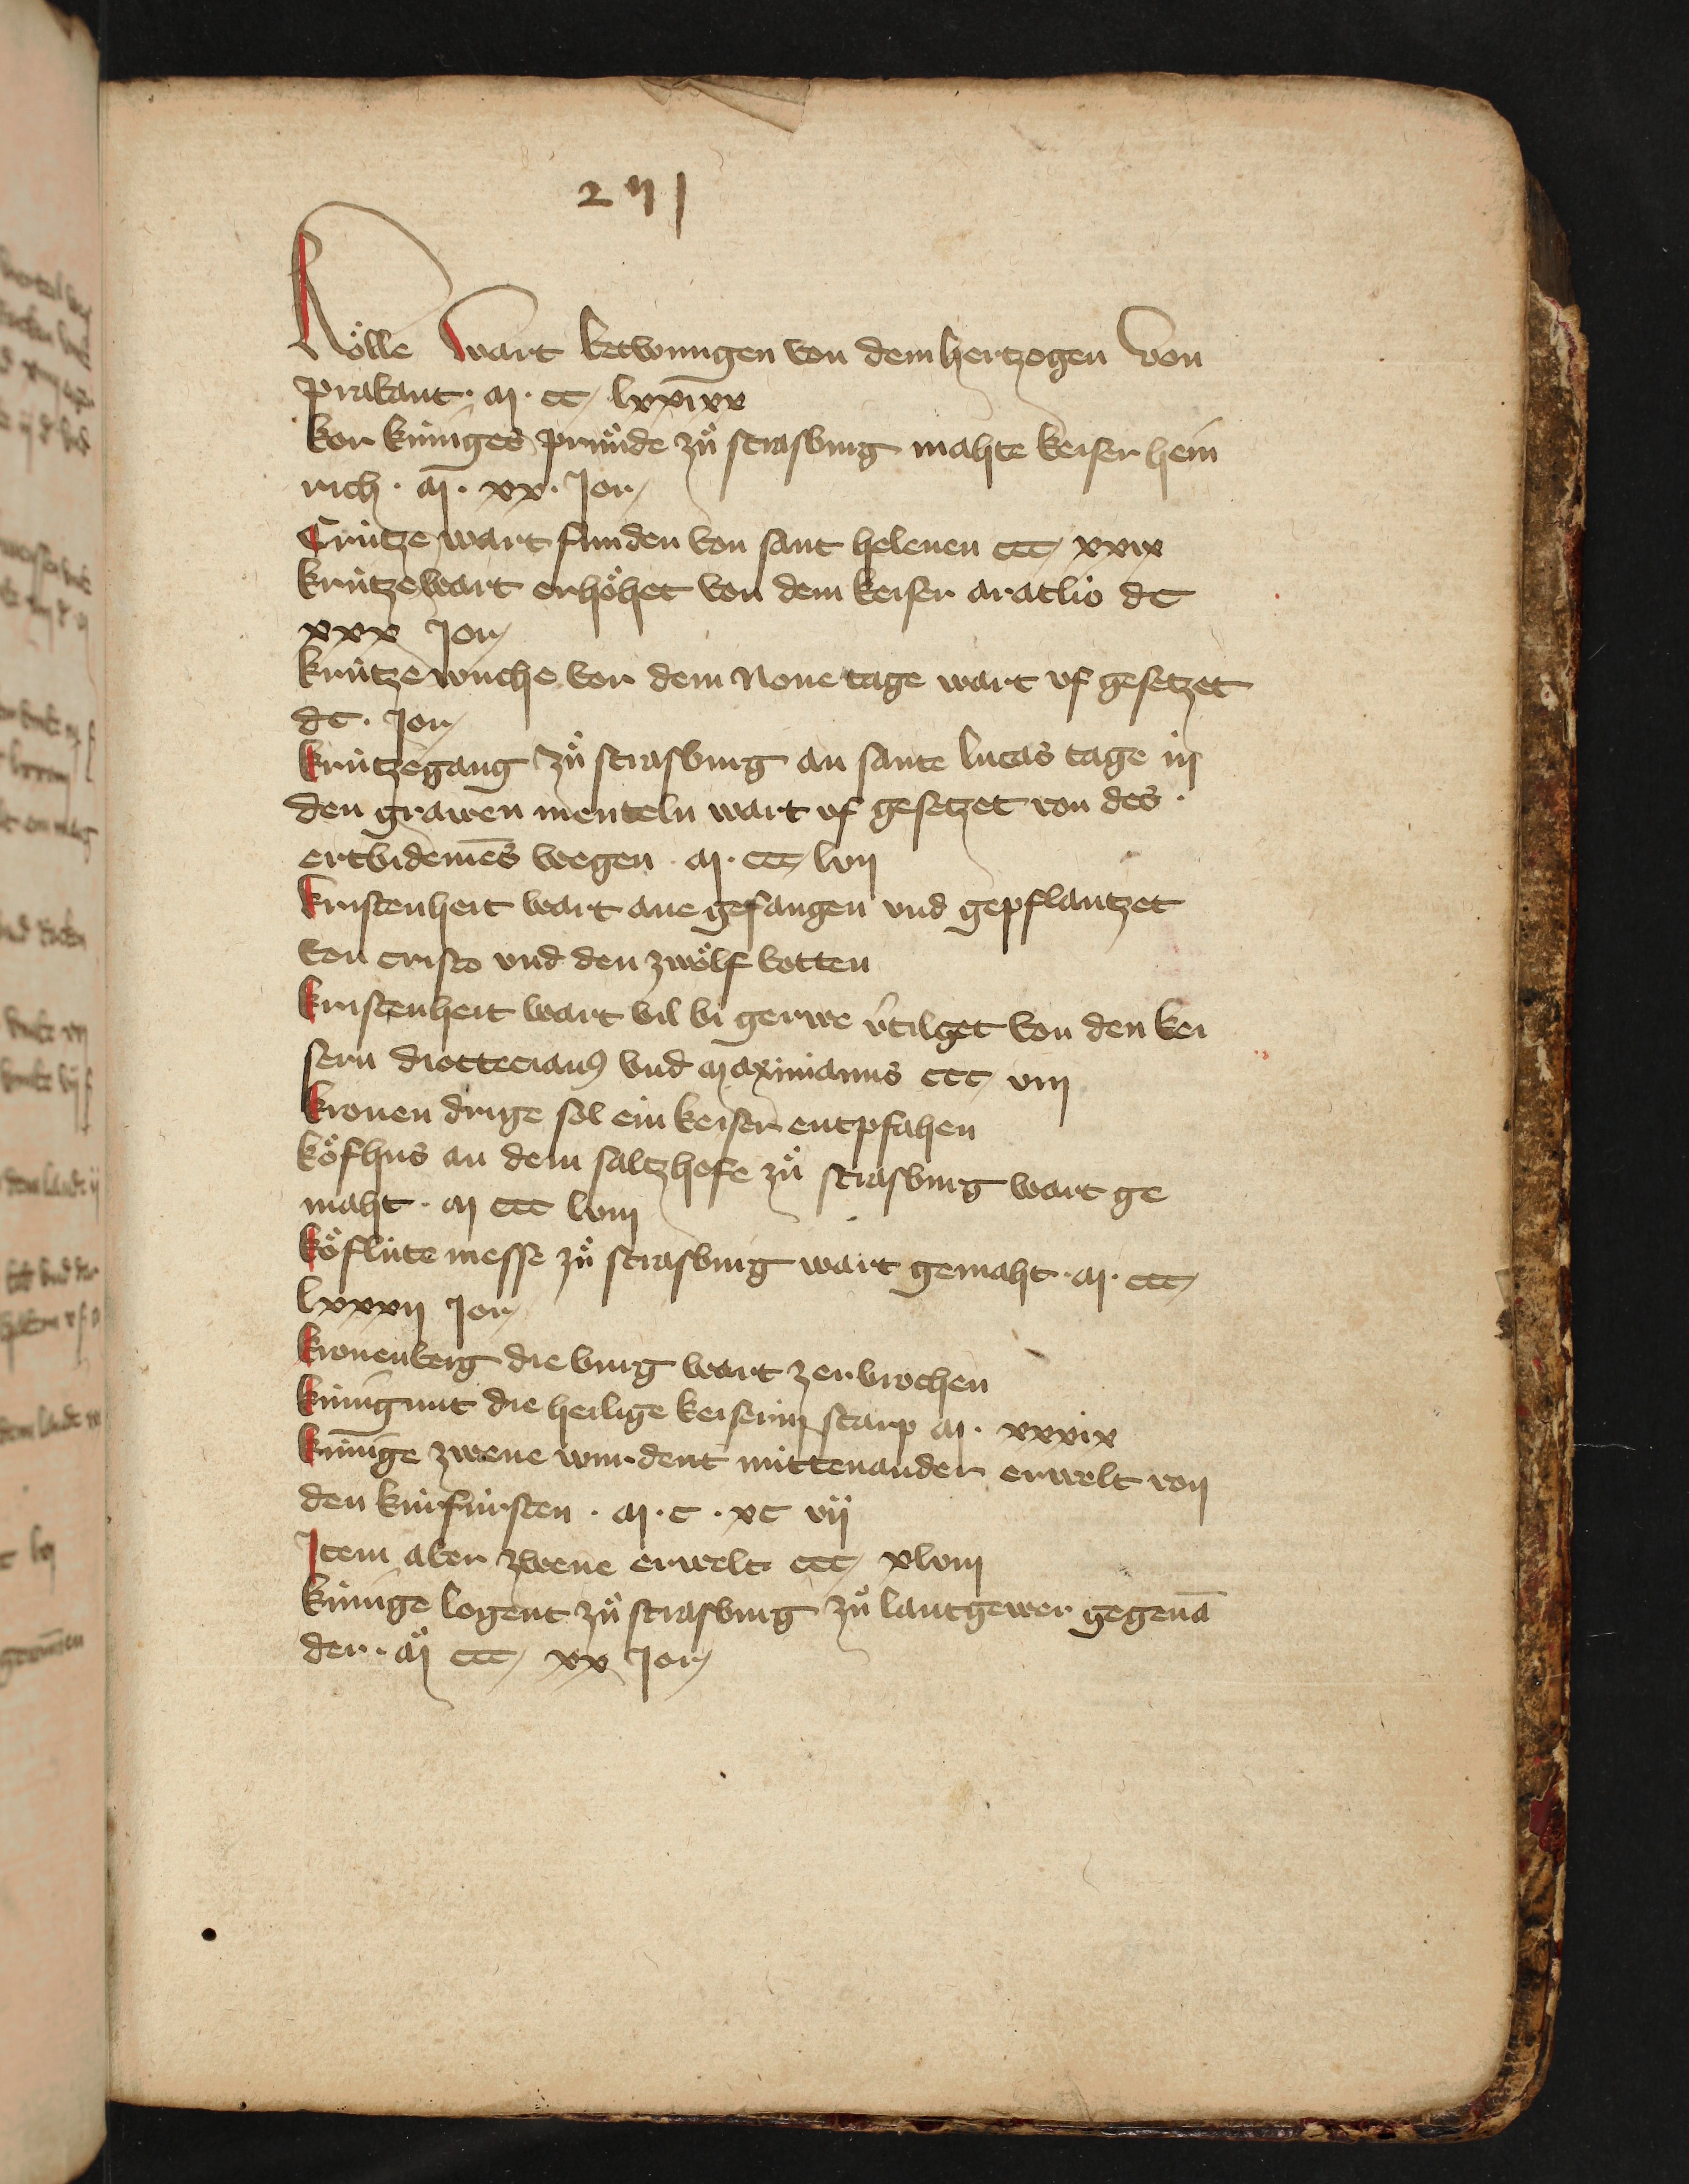 271
Kölle wart betwungen von dem hertzogen von
prabant · M · CC lxxixx
kor küniges pfründe zů strasburg mahte keiser hein
rich · M · xx · Jor
Crütze wart funden von sant helenen CCC xxix
krütze wart erhöhet von dem keiser aratlio dC
xxx Jor
krütze wuche vor dem None tage wart uf gesetzet
dC · Jor
krützegang zů strasburg an sante lucas tage in
den grawen menteln wart uf gesetzet von des
ertbidemēs wegen · M · CCC lvij
kristenheit wart ane gefangen und gepflantzet
von cristo und den zwölf botten
kristenheit wart vil bi gerwe v̄tilget von den kei
sern diottecianꝰ und Maximianus CCC viij
kronen drige sol ein keiser entpfahen
köfhus an dem saltzhofe zů strasburg wart ge
maht · M CCC lviij
köflüte messe zů strasburg wart gemaht · M · CCC
lxxxij Jor
kronenberg die burg wart zerbrochen
künigunt die heilige keiserin starp M · xxxix
künige zwene wurdent mittenander erwelt von
den kürfürsten · M · C · xC vij
Item aber zwene erwelt CCC xlviij
künige logent zů strasburg zů lantgewer gegenā
der · M CCC xx Jor